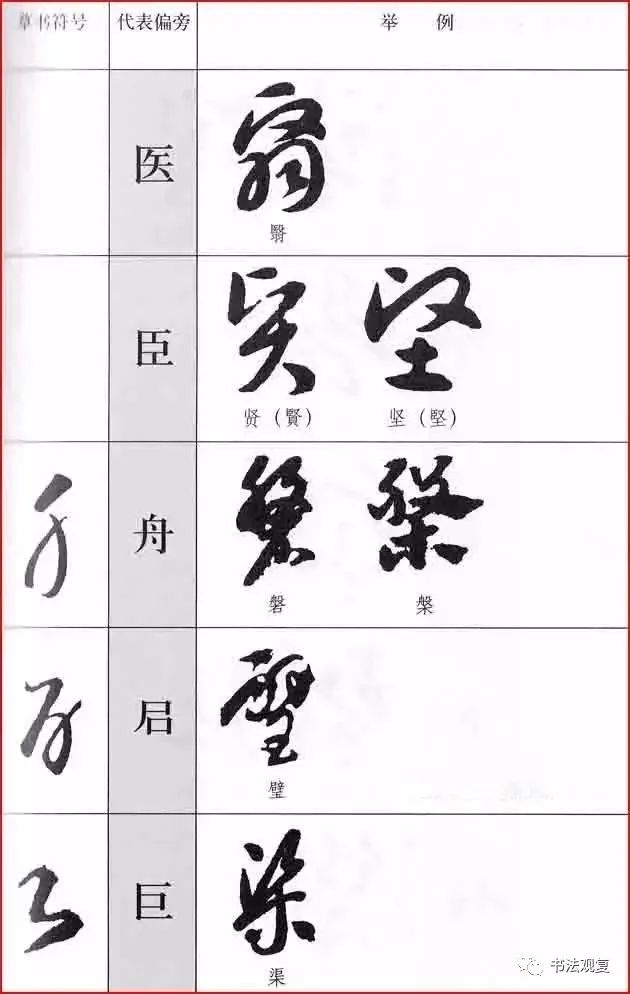 草书符号 代表偏旁 举 例
医
翳
臣
贤（賢） 坚（堅）
舟
磐 槃
璧
巨
渠
书法观复